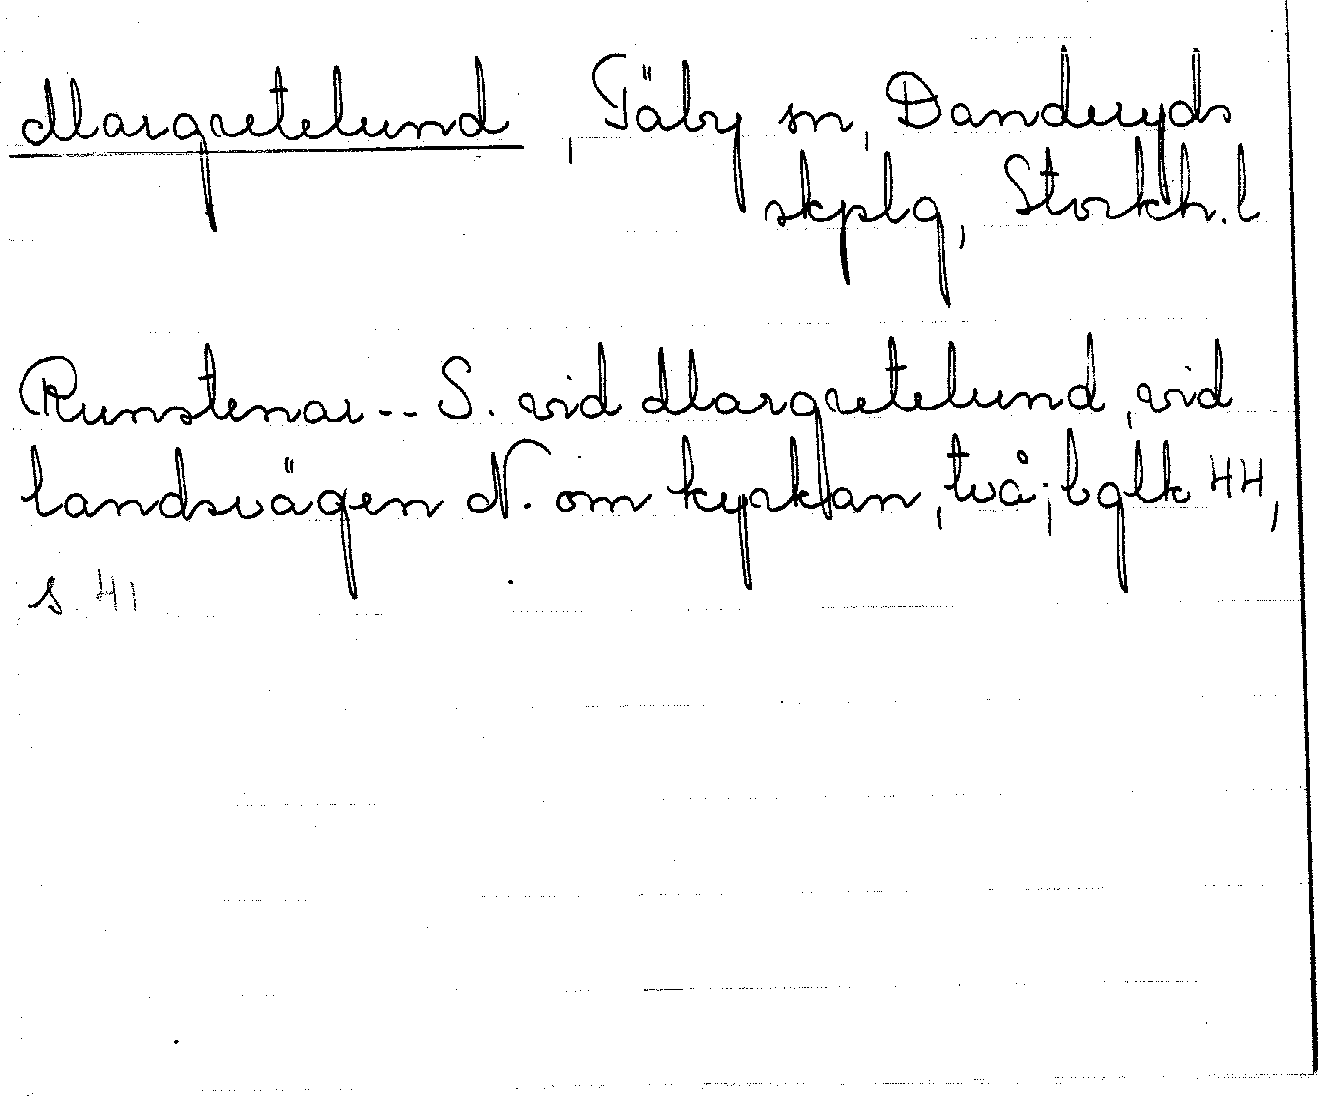 Margretelund, Täby sn, Danderyds
skplg, Stockh.l
Runstenar -- S. vid Margretelund, vid
landsvägen N. om kyrkan, två; bglk 44,
s 41